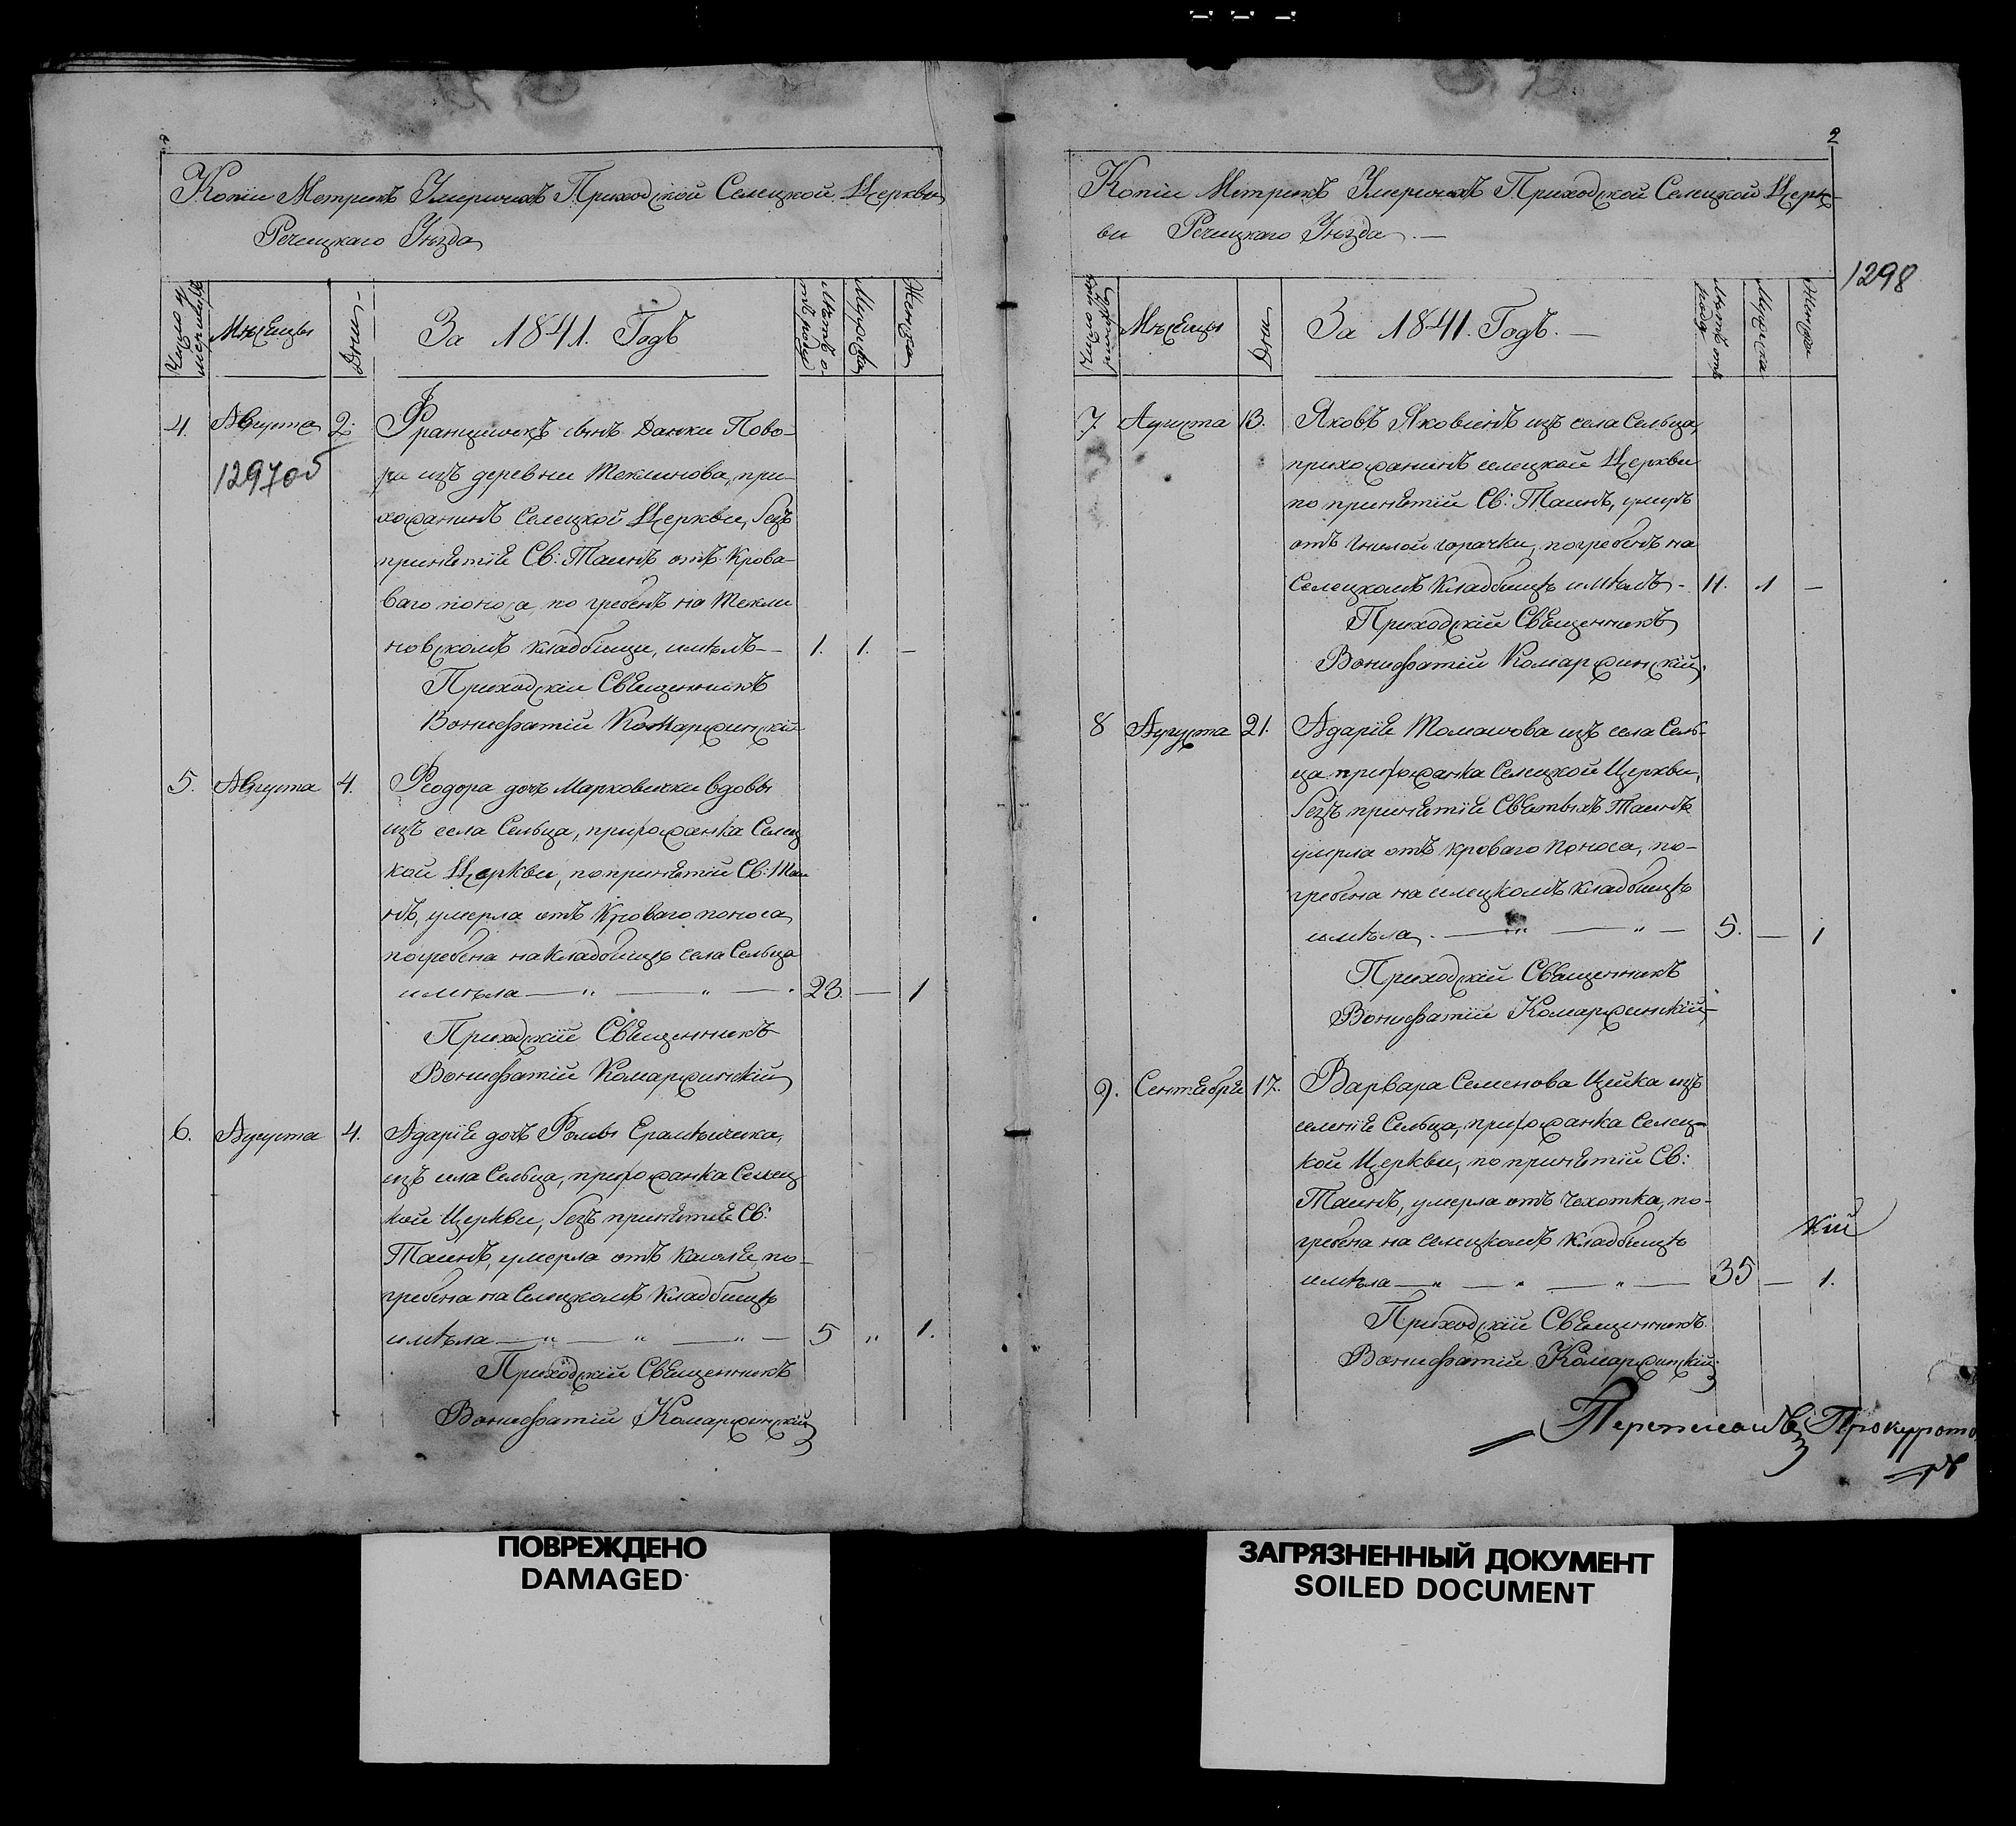 Копіи Метрикъ Умершихъ Приходской Селецкой Церкви
Речицкаго Уѣзда
Число у
мершихъ
Мѣсяцы
Дни
За 1841. Годъ
Лѣтъ о
тъ роду
Мужеска
Женска
4. Августа 2. Францишекъ сынъ Данки Пово-
1297об
ра изъ деревни Теклинова, при-
хожанинъ Селецкой Церкви, безъ
принятія Св: Таинъ отъ Крова-
ваго поноса, погребенъ на Текли
новскомъ кладбищи, имѣлъ - 1. 1. —
Приходскій Священникъ
Вонифатій Комаржинскій
5. Августа 4. Феодора дочъ Марковички вдовы
изъ села Сельца, прихожанка Селец
кой Церкви, по принятіи Св: Таи
нъ, умерла отъ Кроваго поноса
погребена на кладбищѣ села Сельца
имѣла — „ — „ — 23. — 1
Приходскій Священникъ
Вонифатій Комаржинскій
6. Августа 4. Адарія дочъ Ромы
изъ села Сельца, прихожанка Селец
кой Церкви, безъ принятія Св:
Таинъ, умерла отъ кашля, по-
гребена на Селецкомъ Кладбищѣ
имѣла — „ — „ — „ — 5 „ 1.
Приходскій Священникъ
Вонифатій Комаржинскій
2
Копіи Метрикъ Умершихъ Приходской Селецкой Церк-
ви Речицкаго Уѣзда. —
1298
Мѣсяцы
Дни
За 1841. Годъ. —
Лѣтъ отъ
роду
Мужеска
Женска
7 Августа 13. Яковъ Яковинъ изъ села Сельца,
прихожанинъ селецкой Церкви
по принятіи Св: Таинъ, умеръ
отъ гнилой горачки, погребенъ на
Селецкомъ Кладбищѣ имѣлъ - 11. 1 —
Приходскій Священникъ
Вонифатій Комаржинскій
8 Августа 21. Адарія Томашова изъ села Сель-
ца прихожанка Селецкой Церкви,
безъ принятія Святыхъ Таинъ
умерла отъ кроваго поноса, по-
гребена на селецкомъ кладбищѣ
имѣла. — „ — „ — 5. — 1
Приходскій Священникъ
Вонифатій Комаржинскій
9. Сентября 17. Варвара Семенова Цейка изъ
селенія Сельца, прихожанка Селец-
кой Церкви, по принятіи Св:
Таинъ, умерла отъ чахотка, по-
гребена на селецкомъ кладбищѣ
кій
имѣла — „ — „ — „ — 35 — 1.
Приходскій Священникъ
Вонифатій Комаржинскій
ПОВРЕЖДЕНО
DAMAGED
ЗАГРЯЗНЕННЫЙ ДОКУМЕНТ
SOILED DOCUMENT